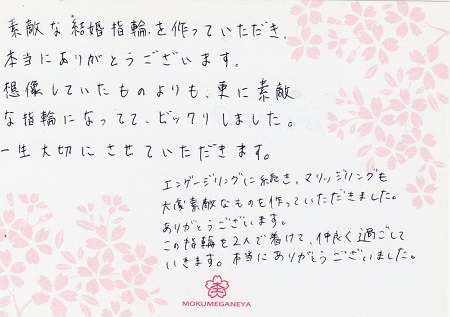 素敵な結婚指輪を作っていただき、
本当にありがとうございます。
想像していたものよりも、更に素敵
な指輪になってて、ビックリしました。
一生大切にさせていただきます。
エンゲージリングに続き、マリッジリングも
大変素敵なものを作っていただきました。
ありがとうございます。
この指輪を2人で着けて、仲良く過ごして
いきます。本当にありがとうございました。
MOKUMEGANEYA